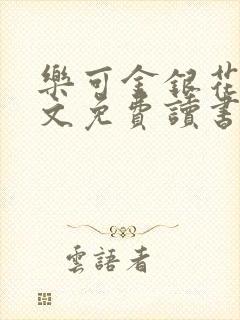 樂可金銀花
文免費讀書
雲語者